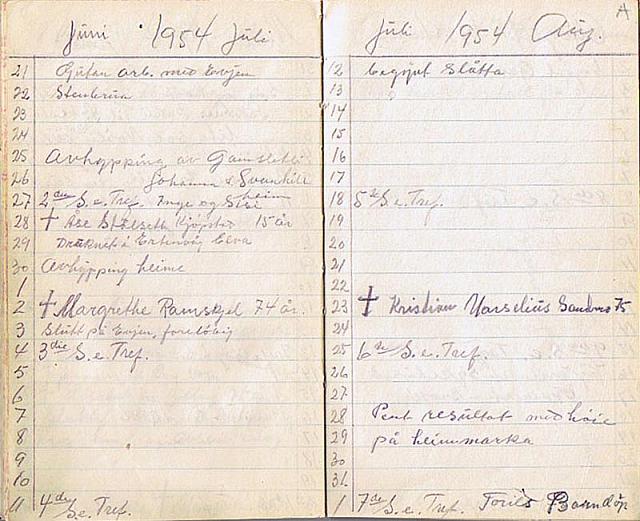 Juni 1954 Juli
21 Gjutan arb. med Evjen
22 Stenbrua
23
24
25 Avhypping av Gamsletti
26 Johanna & Svanhild
27 2den S.e. Tref. Inge og heim
28 † Åse Stølseth Kjøpstad 15 år
29 Druknet i Ertenvåg Elva
30 Avhypping heime
1
2 † Margrethe Ramskjel 74 år.
3 Slutt på Evjen, foreløbig
4 3die S.e. Tref.
5
6
7
8
9
10
11 4de S.e. Tref.
Juli 1954 Aug. A
12 begynt Slåtta
13
14
15
16
17
18 5te S.e. Tref.
19
20
21
22
23 † Kristian Marselius Sandnes 75
24
25 6te S.e. Tref.
26
27
28 Pent resultat med høie
29 på heimmarka
30
31.
1 7de S.e. Tref. Torils Barndåp